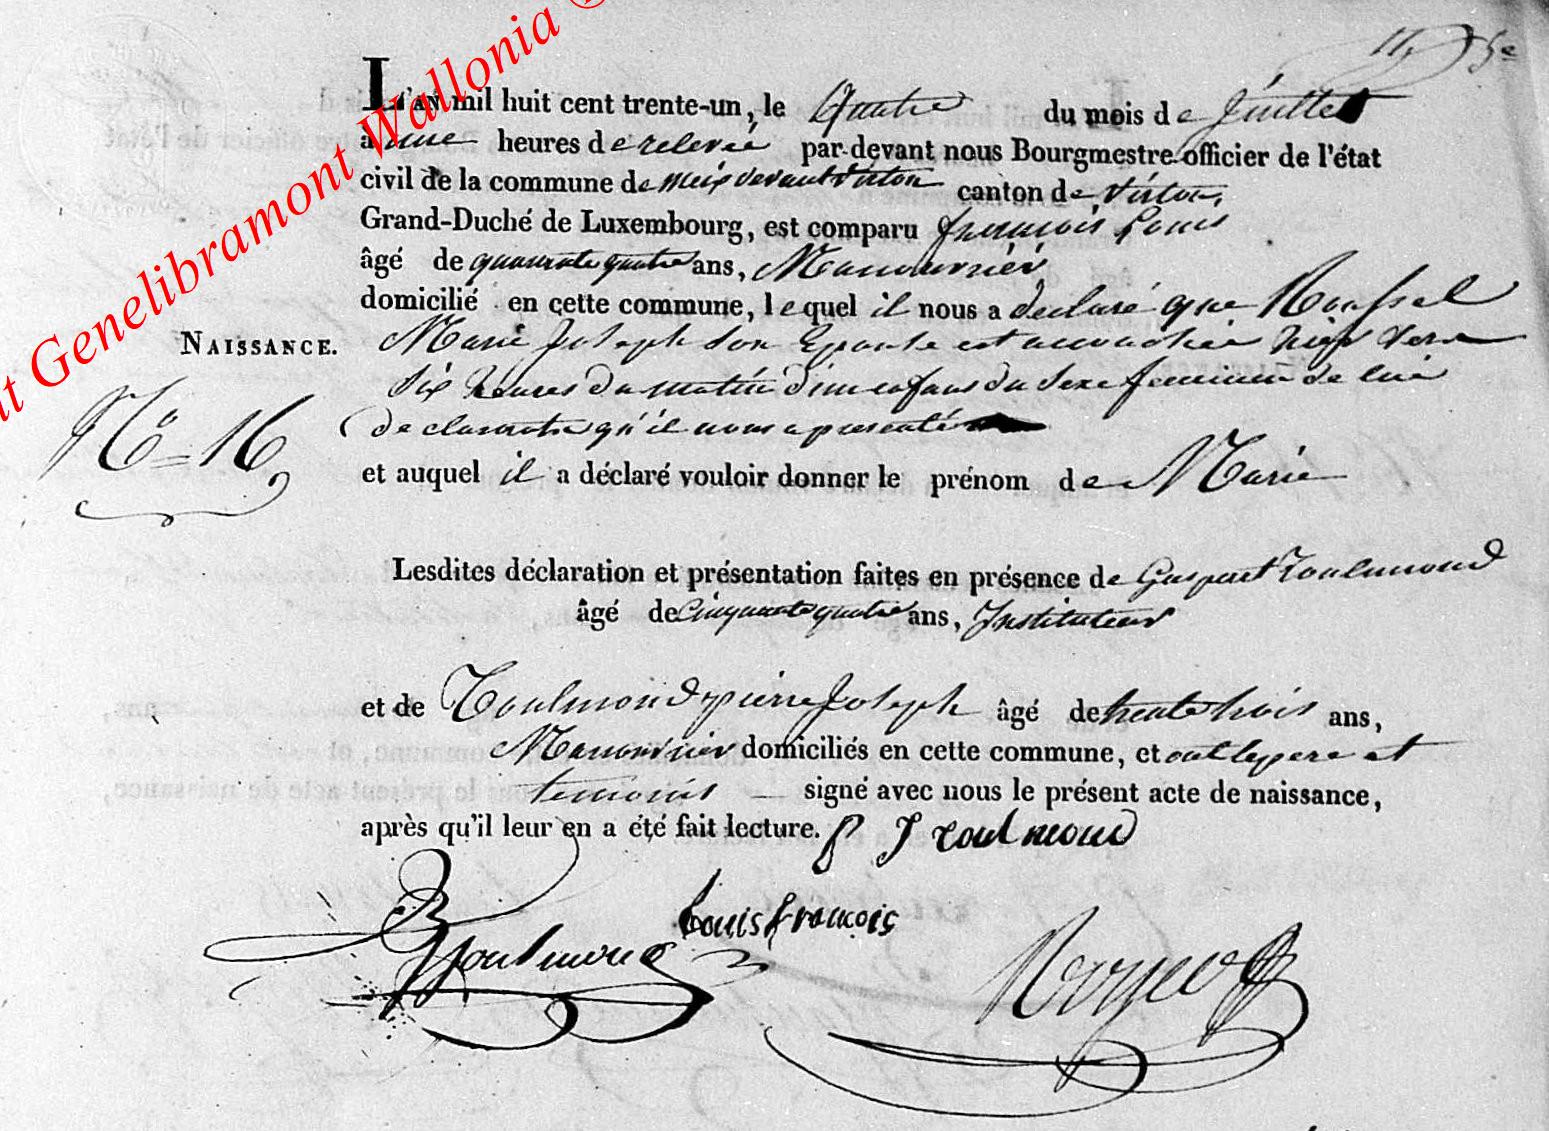 Genelibramont Wallonia
5e
L'AN mil huit cent trente-un, le Quatre du mois de juillet
à une heures de relevée par-devant nous Bourgmestre officier de l'état
civil de la commune de meix devant virton canton de virton,
Grand-Duché de Luxembourg, est comparu françois Louis
âgé de quarante quatre ans, Manouvrier
domicilié en cette commune, lequel il nous a declaré que Roussel
NAISSANCE. Marie Joseph son Epouse est accouchée hier vers
six heures du matin d'un enfans du sexe feminin de lui
No = 16 declarant qu'il nous a presenté
et auquel il a déclaré vouloir donner le prénom de Marie
Lesdites déclaration et présentation faites en présence de Gaspart Toulmond
âgé de Cinquante quatre ans, Instituteur
et de Toulmond pierre Joseph âgé de trente trois ans,
Manouvrier domiciliés en cette commune, et ont le pere et
temoins signé avec nous le présent acte de naissance,
après qu'il leur en a été fait lecture. P J toulmond
Toulmond Louis francois